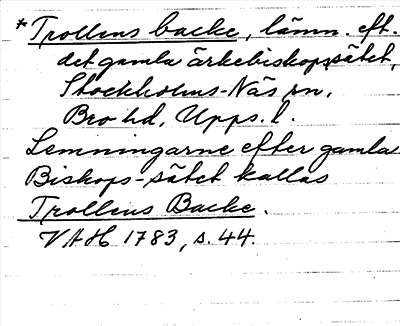 *Trollens backe, lämn. eft.
det gamla ärkebiskopssätet,
Stockholms-Näs sn,
Bro hd, Upps. l.
Lemningarne efter gamla
Biskops-sätet kallas
Trollens Backe.
VAH 1783, s. 44.